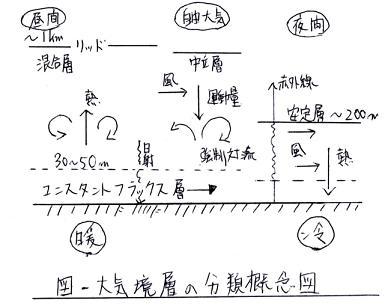 昼間
自由大気
夜間
~1km
リッド
混合層
中立層
赤外線
熱
風
運動量
安定層~200m
30~50m
日射
強制対流
風
熱
コンスタントフラックス層
暖
冷
図-大気境層の分類概念図